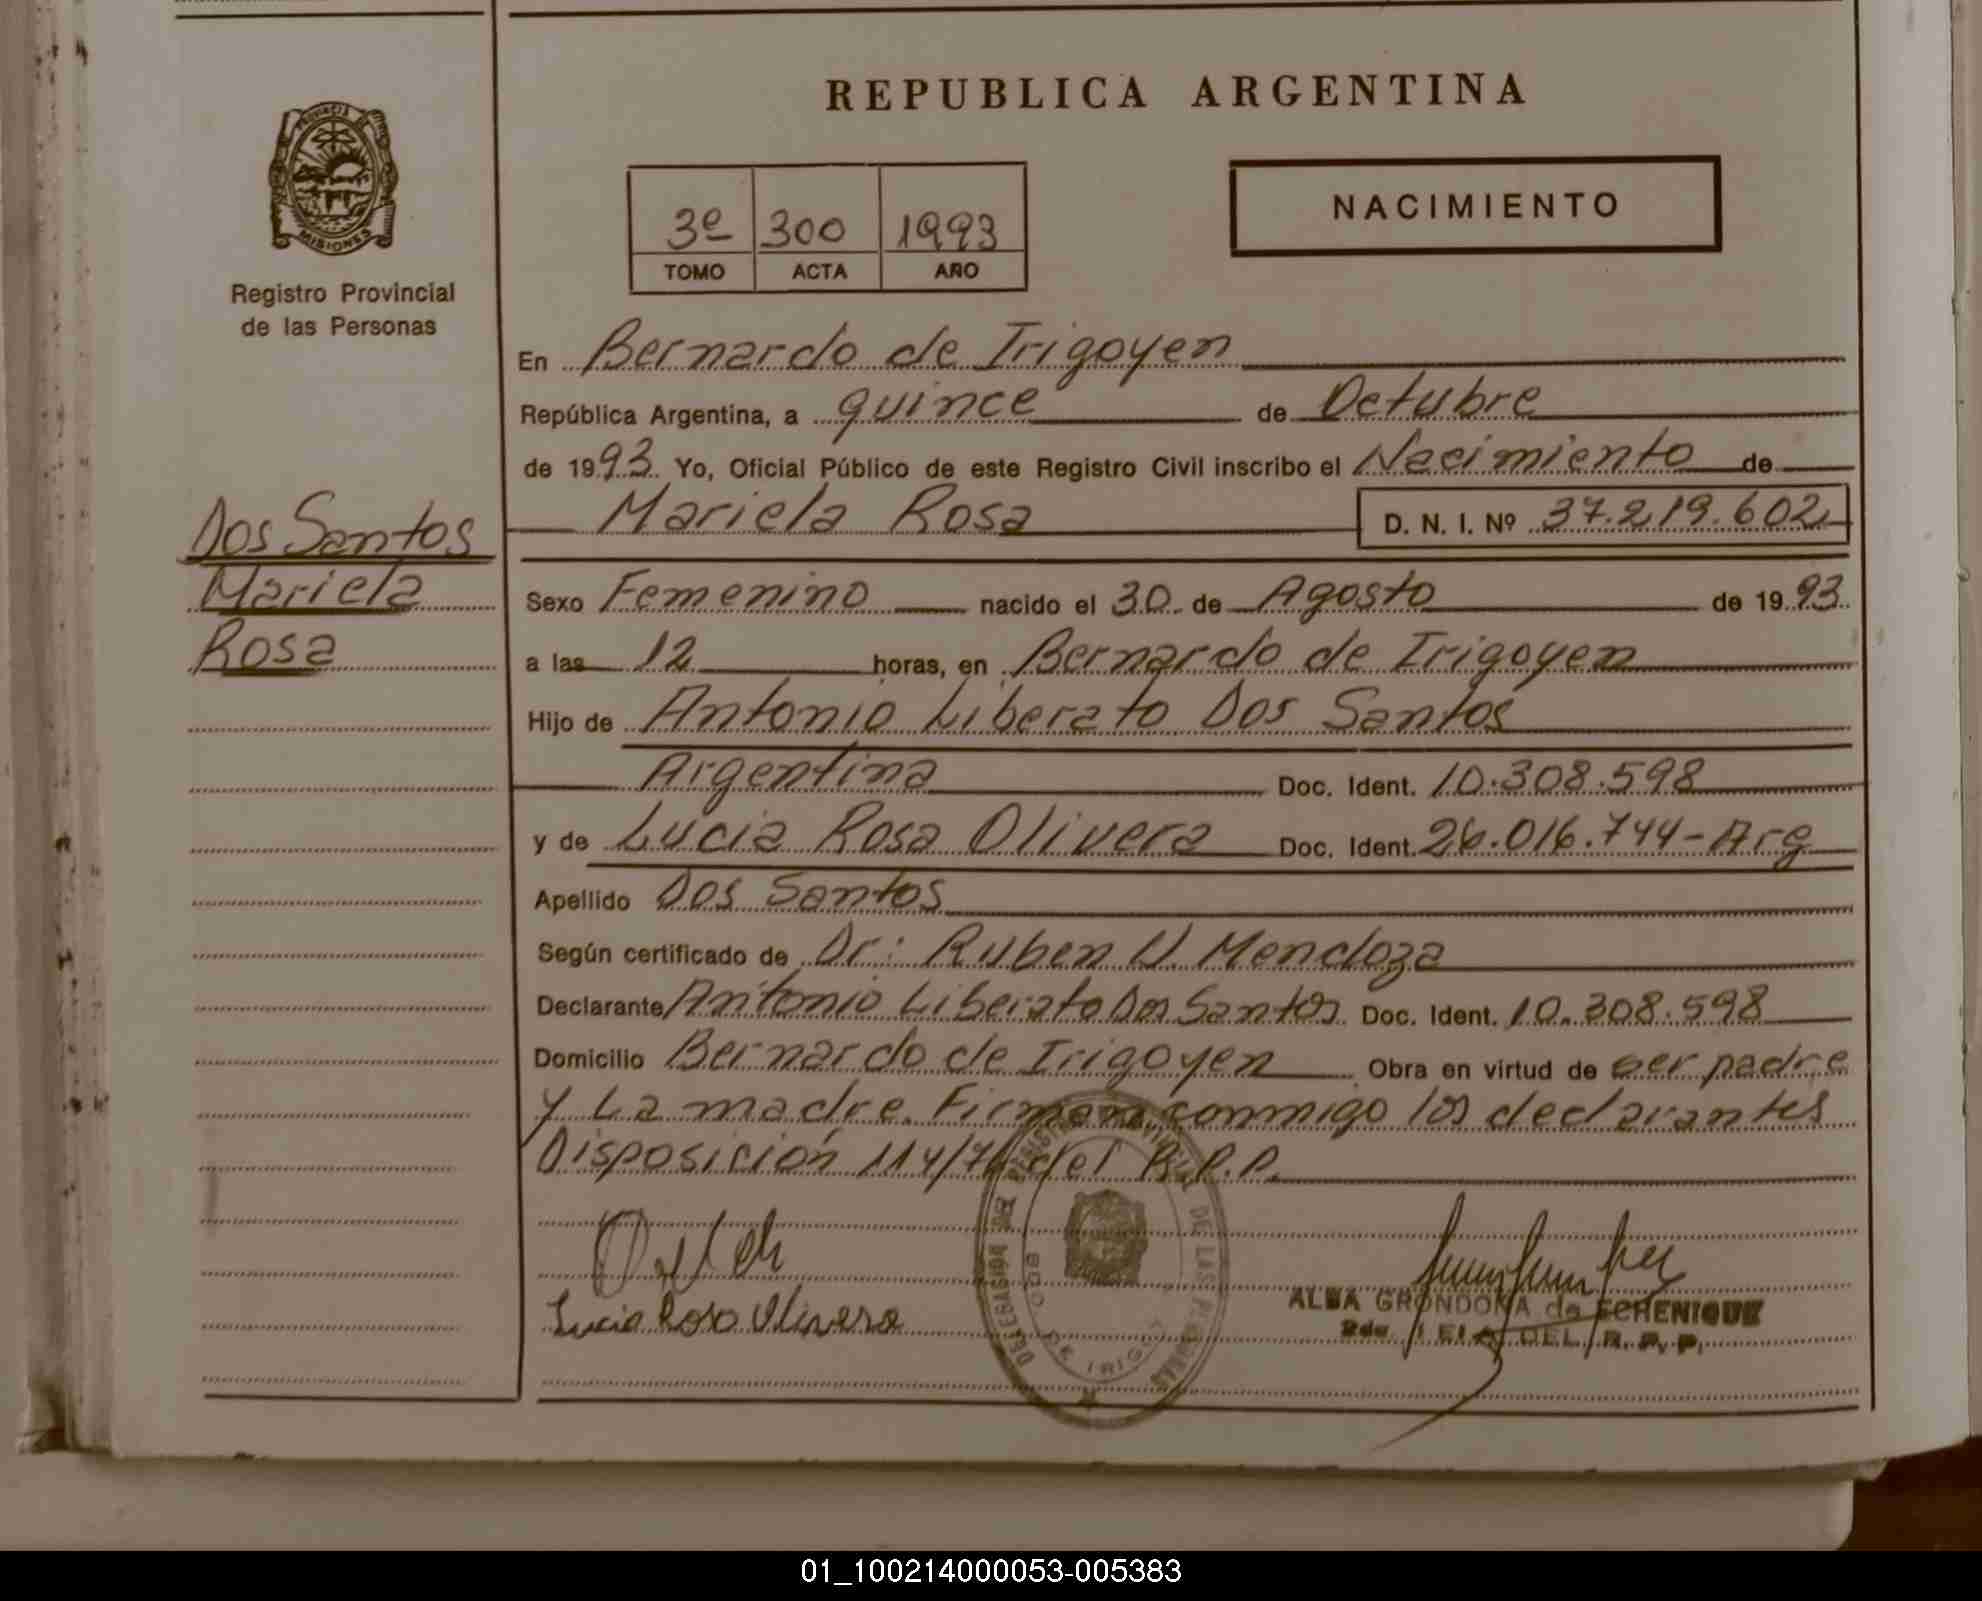 REPUBLICA ARGENTINA
PROVINCIA DE
MISIONES
Registro Provincial
de las Personas
3º 300 1993
TOMO ACTA AÑO
NACIMIENTO
En Bernardo de Irigoyen
República Argentina, a quince de Octubre
de 1993. Yo, Oficial Público de este Registro Civil inscribo el Nacimiento de
Mariela Rosa D. N. I. Nº 37.219.602
Dos Santos
Mariela
Rosa
Sexo Femenino nacido el 30 de Agosto de 1993.
a las 12 horas, en Bernardo de Irigoyen
Hijo de Antonio Liberato Dos Santos
Argentina Doc. Ident. 10.308.598
y de Lucia Rosa Olivera Doc. Ident. 26.016.744-Arg
Apellido Dos Santos
Según certificado de Dr: Ruben U. Mendoza
Declarante Antonio Liberato Dos Santos. Doc. Ident. 10.308.598
Domicilio Bernardo de Irigoyen Obra en virtud de ser padre
y La madre. Firman conmigo los declarantes
Disposición 114/76 del R.P.P.
DELEGACION DEL REGISTRO PROVINCIAL DE LAS PERSONAS
BDO DE IRIGOY
Lucia Rosa Olivera
ALBA GRONDONA de ECHENIQUE
2da. DEL R. P. P.
01_100214000053-005383